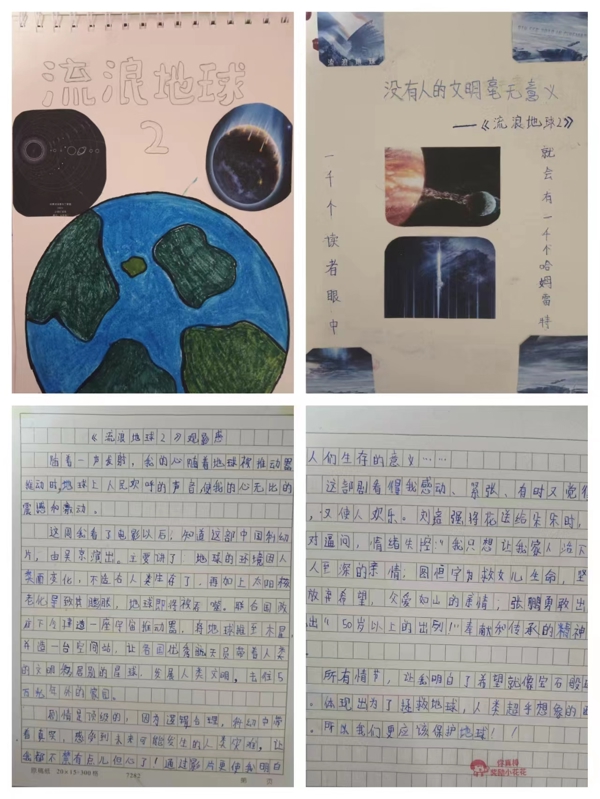 流浪地球
2
没有人的文明毫无意义
——《流浪地球2》
一千个读者眼中
就会有一千个哈姆雷特
《流浪地球2》观影感
随着一声发射，我的心随着地球被推动器
推动时，地球上人民欢呼的声音，使我的心无比的
震撼和轰动。
这周我看了电影以后，知道这部中国制动
片，由吴京演出。主要讲了：地球的环境因人
类而变化，不适合人类生存了，再加上太阳极
老化导致其膨胀，地球即将被吞噬。联合国政
府下令建造一座宇宙推动器，将地球推至木星
万亿年外的家园。
剧情是顶级的，因为逻辑合理，行动中带
着真实，感慨到未来可能发生的人类灾难，让
我都不禁有点儿担心了！通过影片更使我明白
20×15=300格
人们生存的意义……
这部剧看得我感动、紧张、有时又觉得
，又使人欢乐。刘启强将花送给朵朵时，
对逼问，情绪失控：“我只想让我家人活下
人至深的亲情。图恒宇为救女儿生命，坚
放弃希望，父爱如山的亲情，张鹏勇敢出
出“50岁以上的出列！”奉献和传承的精神
所有情节，让我明白了希望就像宝石般
。体现出为了拯救地球，人类超乎想象的
。所以我们更应该保护地球！！
你真棒
奖励小花花